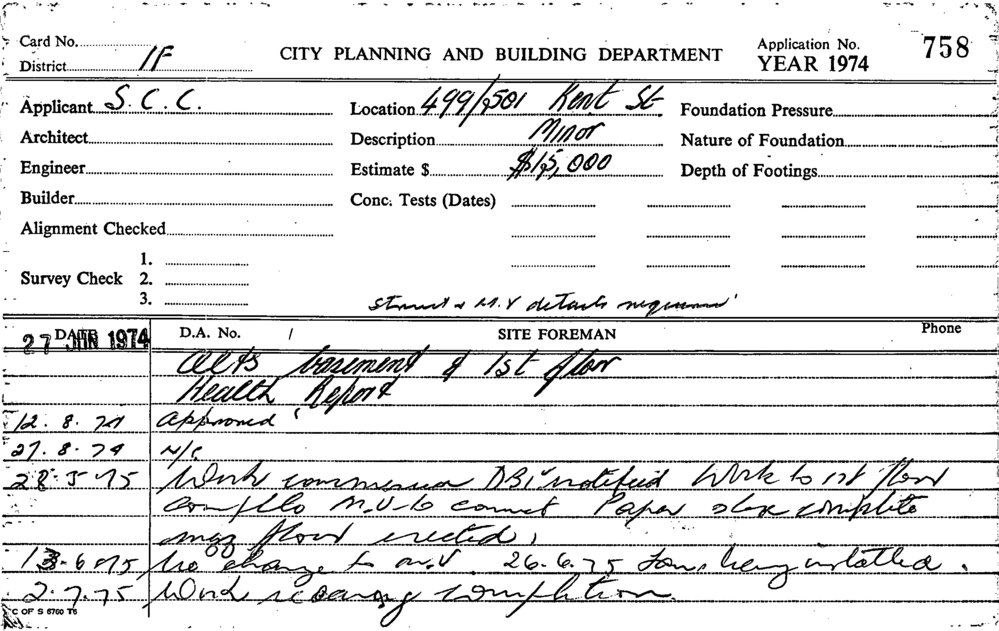 Card No.
District 1F
CITY PLANNING AND BUILDING DEPARTMENT
Application No. 758
YEAR 1974
Applicant S. C. C.
Location 499/501 Kent St
Foundation Pressure
Architect
Description Minor
Nature of Foundation
Engineer
Estimate $ $15,000
Depth of Footings
Builder
Conc. Tests (Dates)
Alignment Checked
Survey Check
1.
2.
3.
& M.V details
DATE 27 JUN 1974
D.A. No. /
SITE FOREMAN
Phone
Alts basement & 1st floor
Health Report
12. 8. 74 Approved
27. 8. 74 N/C
28. 5. 75 Work DBI notified Work to 1st floor
M.V. to Paper complete
floor erected.
13. 6. 75 No change to M.V 26.6.75 being installed.
2. 7. 75 Work nearing completion.
C OF S 6760 T6